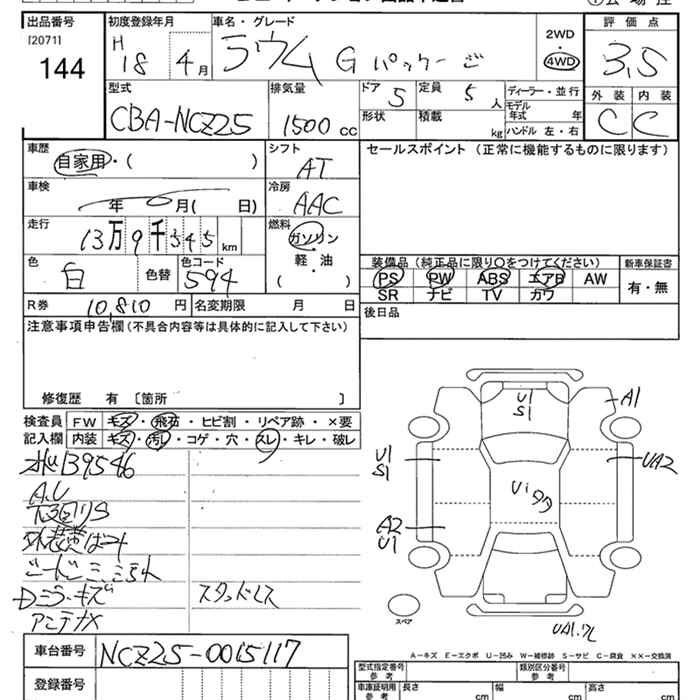 出品番号
[20711
144
初度登録年月
H 18 4月
車名・グレード
ラウム G パッケージ
2WD
・
4WD
評価点
3.5
型式
CBA-NCZ25
排気量
1500 CC
ドア 5
定員 5 人
形状
積載 kg
ディーラー・並行
モデル
年式 年
ハンドル 左・右
外装 内装
C C
車歴
自家用・( )
シフト
AT
セールスポイント (正常に機能するものに限ります)
車検
年 月( 日)
冷房
AAC
走行
13万9千345km
燃料
ガソリン
・
軽・油
( )
色
白
色替
色コード
594
装備品 (純正品に限り○をつけてください)
PS PW ABS エアB AW
SR ナビ TV カワ
新車保証書
有・無
R券 10,810円
名変期限 月 日
後日品
注意事項申告欄 (不具合内容等は具体的に記入して下さい)
修復歴 有 〔箇所 〕
検査員
記入欄
FW キズ・飛石・ヒビ割・リペア跡・×要
内装 キズ・汚レ・コゲ・穴・スレ・キレ・破レ
139546
A.U
下回りS
Dミラーキズ
アンテナX
スタッドレス
U1
S1
A1
U1
S1
UA2
A2
U1
スペア
A−キズ E−エクボ U−凹み W−補修跡 S−サビ C−腐食 XX−交換済
車台番号
NCZ25-0065117
登録番号
型式指定番号
参考
類別区分番号
参考
車庫証明用
参考
長さ cm
幅 cm
高さ cm